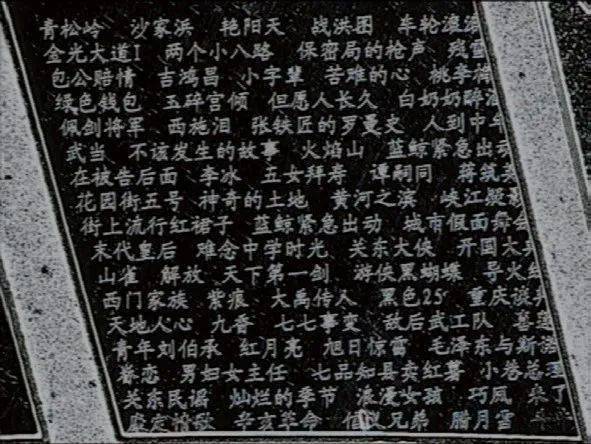 青松岭 沙家浜 艳阳天 战洪图 车轮滚滚
金光大道I 两个小八路 保密局的枪声 残雪
包公赔情 吉鸿昌 小字辈 苦难的心 桃李
绿色钱包 玉碎宫倾 但愿人长久 白奶奶醉酒
佩剑将军 西施泪 张铁匠的罗曼史 人到中年
武当 不该发生的故事 火焰山 蓝鲸紧急出动
在被告后面 李冰 五女拜寿 谭嗣同 蒋筑英
花园街五号 神奇的土地 黄河之滨 峡江疑影
街上流行红裙子 蓝鲸紧急出动 城市假面舞会
末代皇后 难念中学时光 关东大侠 开国大典
山雀 解放 天下第一剑 游侠黑蝴蝶 导火线
西门家族 紫痕 大禹传人 黑色25 重庆谈判
天地人心 九香 七七事变 敌后武工队 喜莲
青年刘伯承 红月亮 旭日惊雷 毛泽东与斯诺
眷恋 男妇女主任 七品知县卖红薯 小巷总理
关东民谣 灿烂的季节 浪漫女孩 巧凤
康定情歌 辛亥革命 信义兄弟 腊月雪